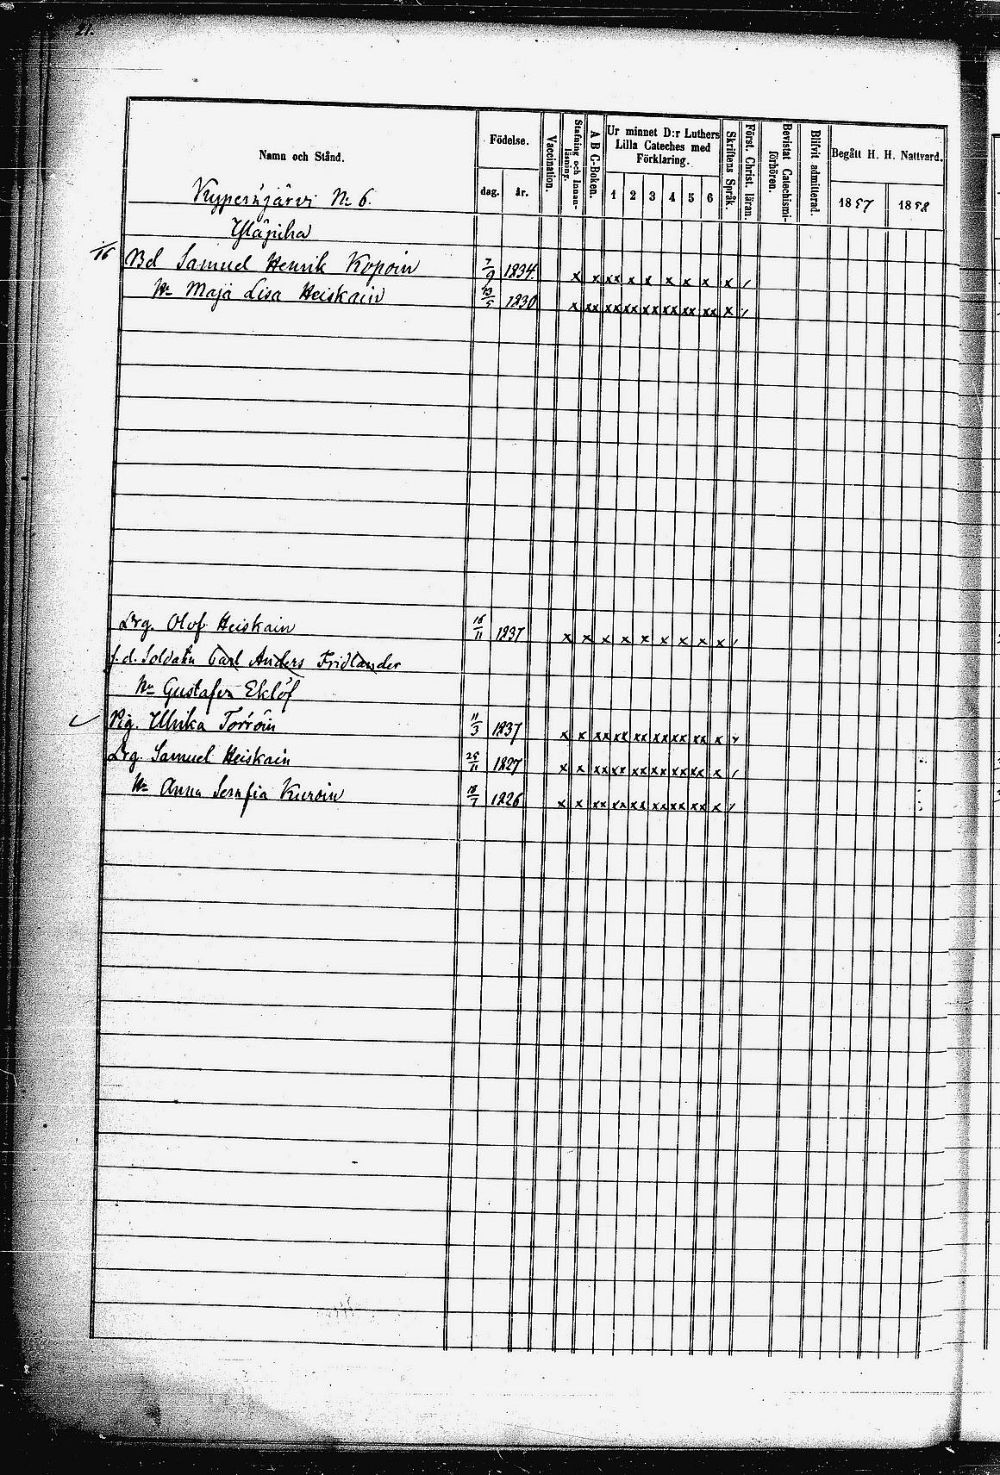 21.
Namn och Stånd.
Födelse.
dag.
år.
Vaccination.
Stafning och Innanläsning.
A B C-Boken.
Ur minnet D:r Luthers Lilla Cateches med Förklaring.
1 2 3 4 5 6
Skriftens Språk.
Först. Christ. läran.
Bevistat Catechismiförhören.
Blifvit admitterad.
Begått H. H. Nattvard.
1857 1858
N:o 6.
Yläpiha
/16 Bd Samuel Henrik Kopoin 7/9 1834 x x xx x x x x x x /
Maja Lisa Heiskain 1830 x xx xx xx xx xx xx xx x /
Drg. Olof Heiskain 16/11 1837 x x x x x x x x x /
f.d. Soldaten Carl Anders Fridlander
Gustafva Eklöf
Pig. Ulrika Torvoin 11/3 1837 x x xx xx xx xx xx xx x
Drg Samuel Heiskain 25/11 1827 x x xx xx xx xx xx xx x /
Anna Serafia Kuroin 18/7 1826 x x xx xx xx xx xx xx x /